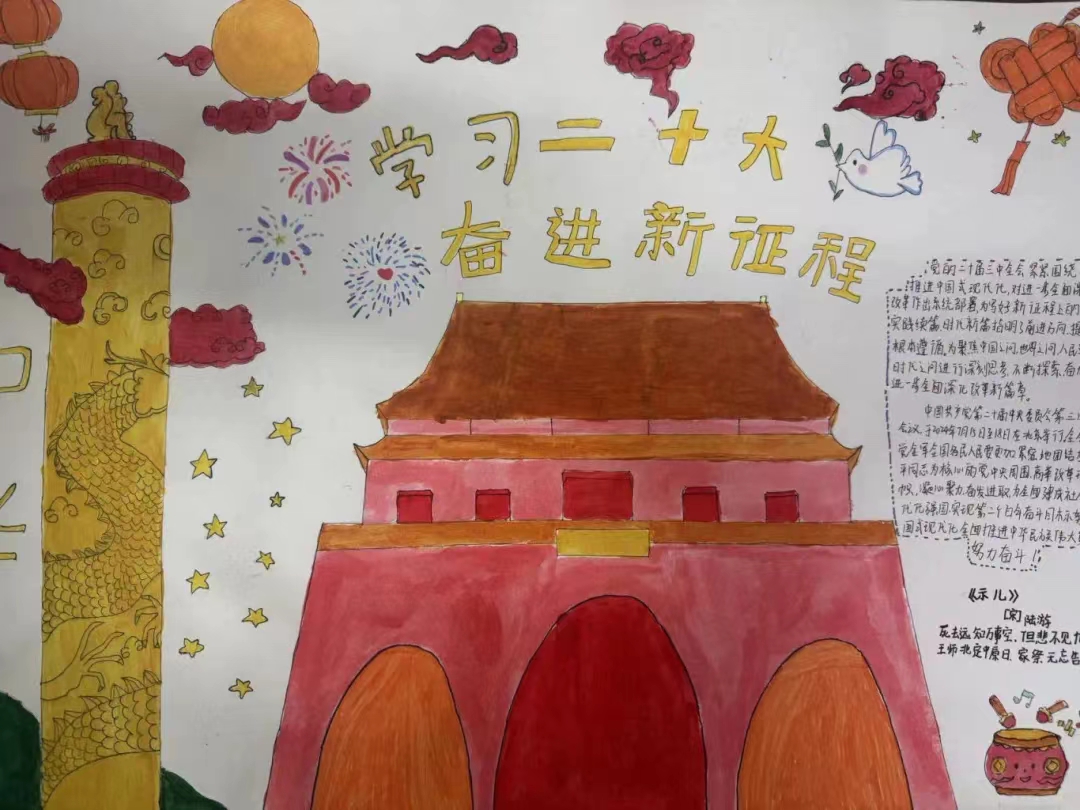 学习二十大
奋进新征程
党的二十届三中全会紧紧围绕
推进中国式现代化,对进一步全面深
改革作出系统部署,为写好新征程上的
实践续篇、时代新篇指明了前进方向、提
根本遵循,为聚焦中国之问、世界之问、人民
时代之问进行深刻思考、不断探索,奋力
进一步全面深化改革新篇章。
中国共产党第二十届中央委员会第三
会议,于2024年7月15日至18日在北京举行,全
党全军全国各民人民要更加紧密地团结
平同志为核心的党中央周围,高举改革
帜,凝心聚力,奋发进取,为全面建成社
代化强国,实现第二个百年奋斗目标,
国式现代化全面推进中华民族伟大
努力奋斗!
《示儿》
[宋]陆游
死去远知万事空,但悲不见
王师北定中原日,家祭无忘告